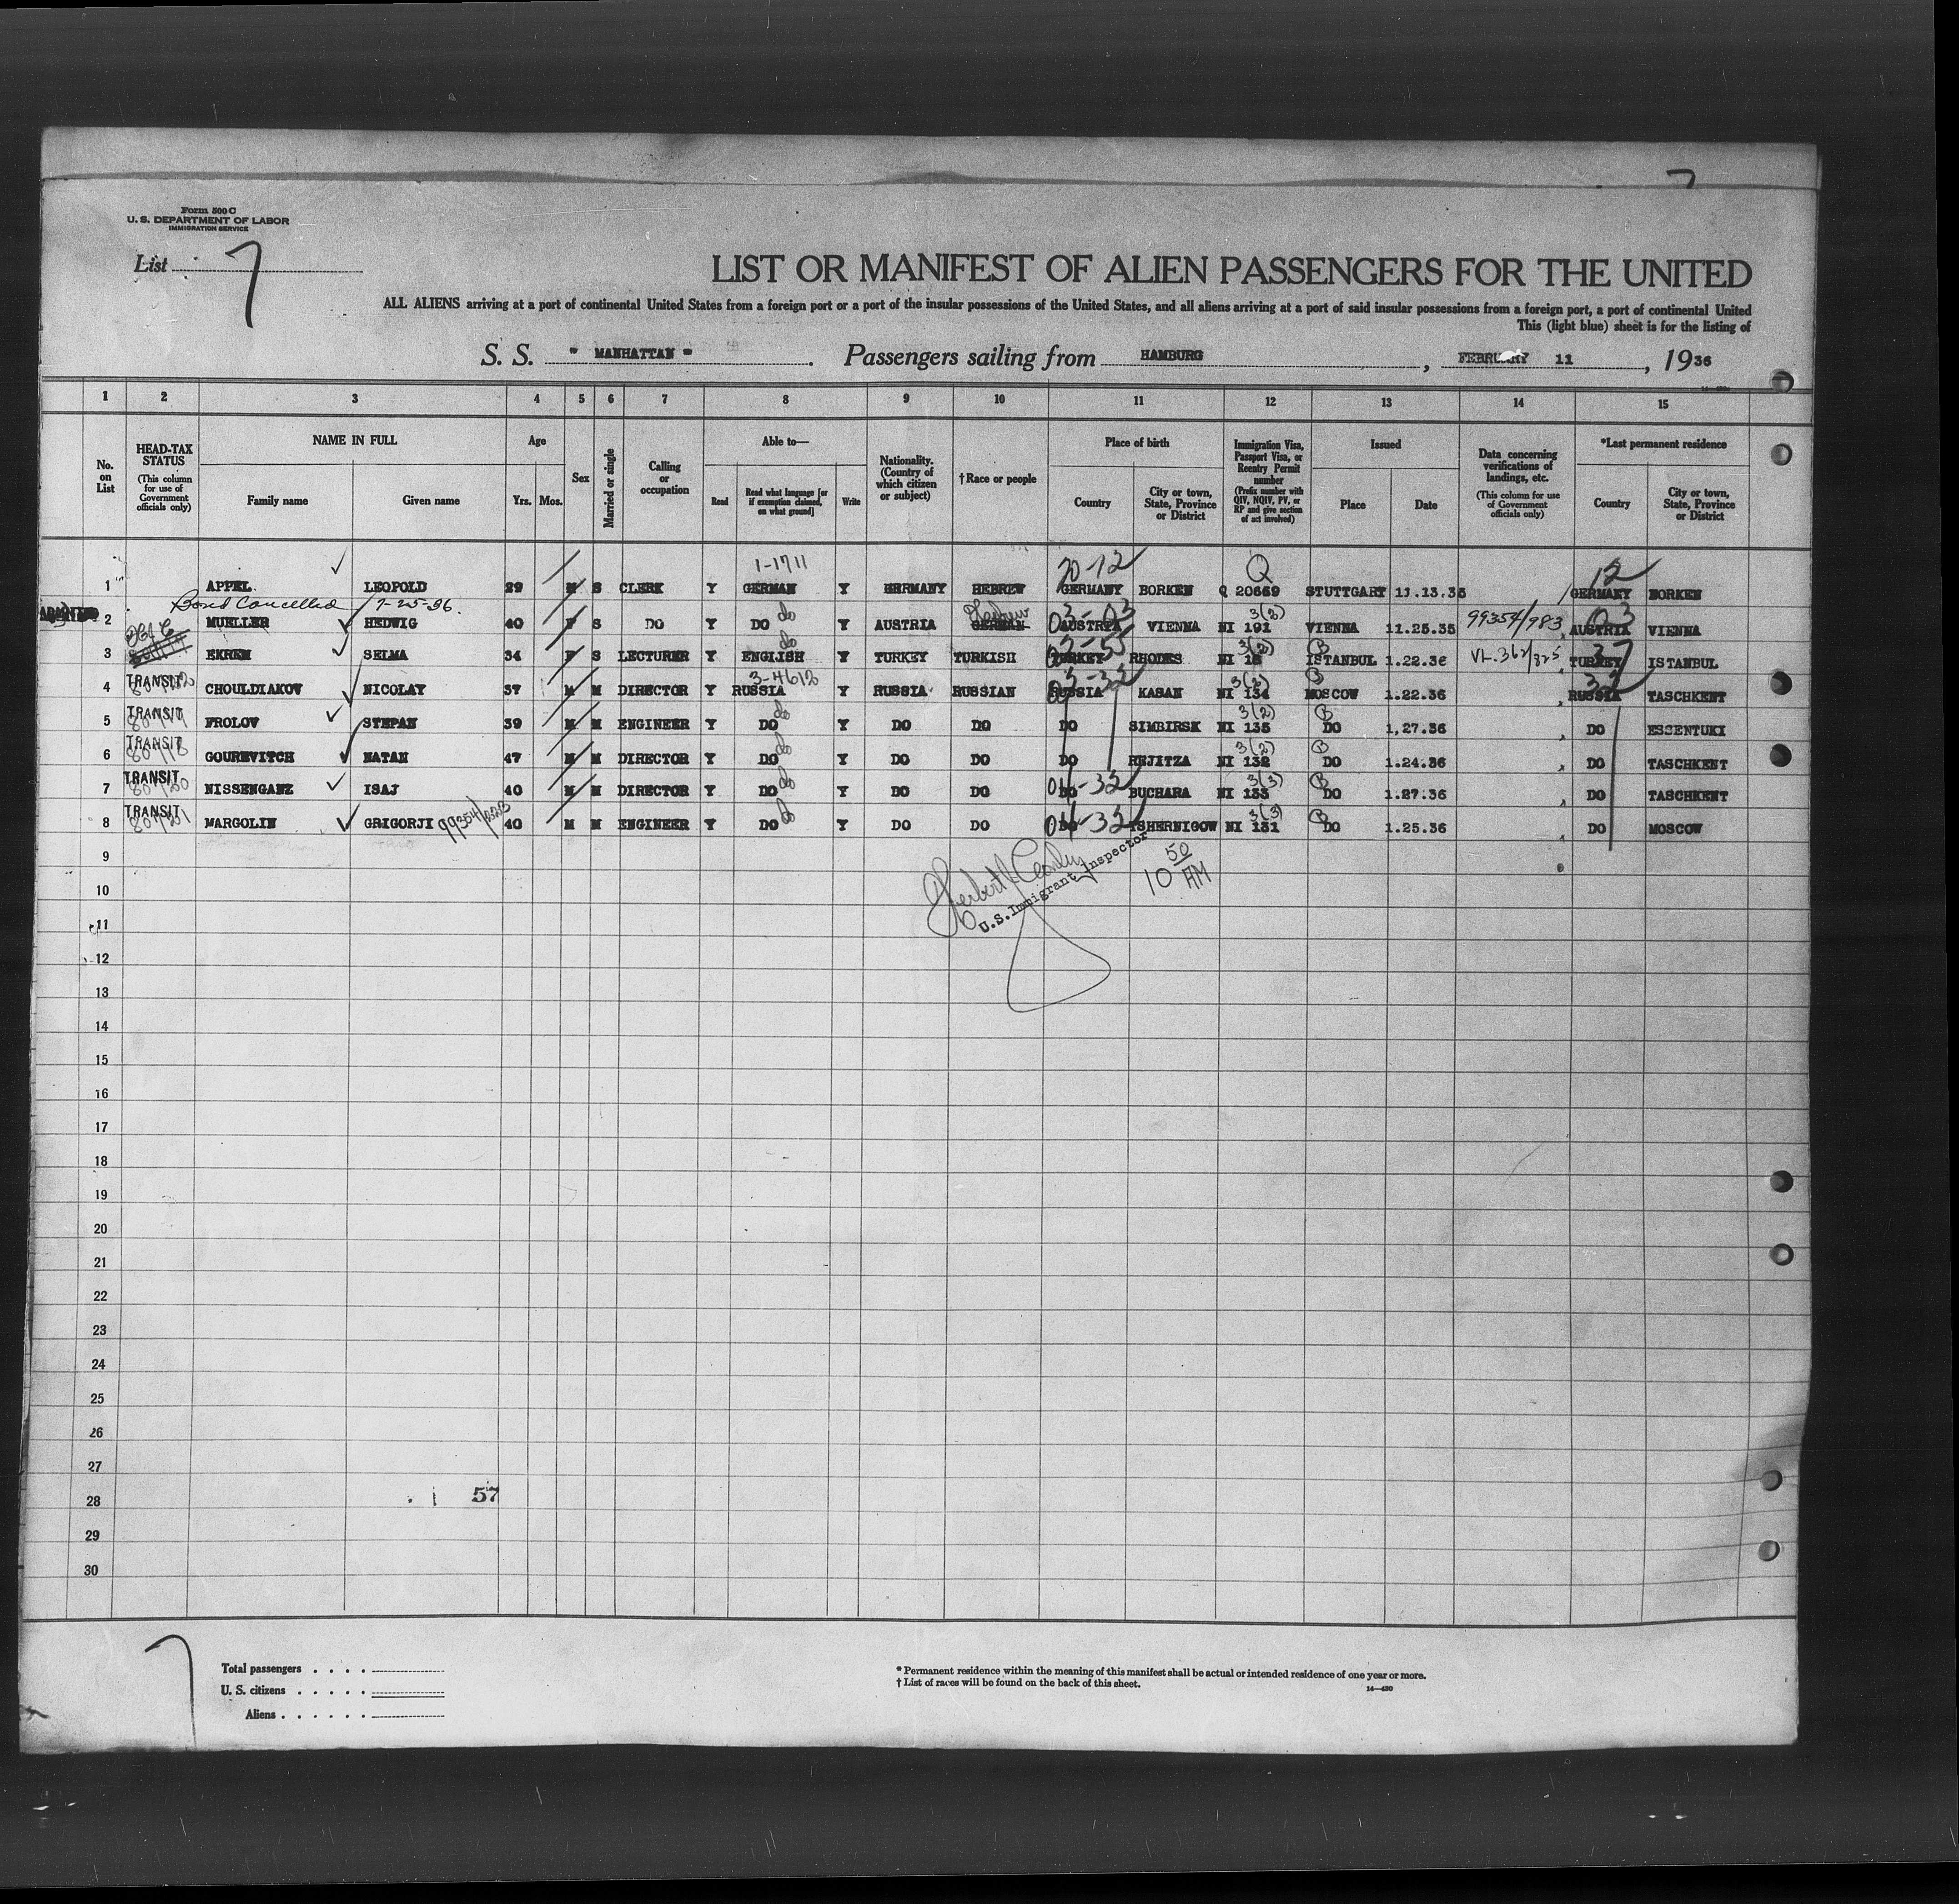 7
Form 500 C
U. S. DEPARTMENT OF LABOR
IMMIGRATION SERVICE
List 7
LIST OR MANIFEST OF ALIEN PASSENGERS FOR THE UNITED
ALL ALIENS arriving at a port of continental United States from a foreign port or a port of the insular possessions of the United States, and all aliens arriving at a port of said insular possessions from a foreign port, a port of continental United
This (light blue) sheet is for the listing of
S. S. " MANHATTAN " . Passengers sailing from HAMBURG , FEBRUARY 11 , 1936
1 2 3 4 5 6 7 8 9 10 11 12 13 14 15
No. on List
HEAD-TAX STATUS (This column for use of Government officials only)
NAME IN FULL
Family name Given name
Age
Yrs. Mos.
Sex
Married or single
Calling or occupation
Able to—
Read Read what language [or if exemption claimed, on what ground] Write
Nationality. (Country of which citizen or subject)
† Race or people
Place of birth
Country City or town, State, Province or District
Immigration Visa, Passport Visa, or Reentry Permit number (Prefix number with QIV, NQIV, PV, or RP and give section of act involved)
Issued
Place Date
Data concerning verifications of landings, etc. (This column for use of Government officials only)
*Last permanent residence
Country City or town, State, Province or District
1-1711 20-12 Q 12
1 APPEL LEOPOLD 29 M S CLERK Y GERMAN Y GERMANY HEBREW GERMANY BORKEN Q 20669 STUTTGART 11.13.35 GERMANY BORKEN
Bond Cancelled 7-25-36.
ADMITTED 2 MUELLER HEDWIG 40 F S DO Y DO do Y AUSTRIA GERMAN Hebrew AUSTRIA 03-03 VIENNA NI 191 3(2) VIENNA 11.25.35 99354/983 AUSTRIA 03 VIENNA
3 EKREM SELMA 34 F S LECTURER Y ENGLISH do Y TURKEY TURKISH TURKEY RHODES NI 16 3(2) ISTANBUL 1.22.36 VL.362/325 TURKEY 37 ISTANBUL
3-4612
TRANSIT 4 CHOULDIAKOV NICOLAY 37 M M DIRECTOR Y RUSSIA Y RUSSIA RUSSIAN RUSSIA KASAN NI 134 3(2) MOSCOW 1.22.36 RUSSIA TASCHKENT
TRANSIT 5 FROLOV STEPAN 39 M M ENGINEER Y DO do Y DO DO DO SIMBIRSK NI 135 3(2) DO 1,27.36 DO ESSENTUKI
TRANSIT 6 GOUREVITCH NATAN 47 M M DIRECTOR Y DO do Y DO DO DO REJITZA NI 132 3(2) DO 1.24.36 DO TASCHKENT
TRANSIT 7 NISSENGANZ ISAJ 40 M M DIRECTOR Y DO do Y DO DO DO BUCHARA NI 133 3(3) DO 1.27.36 DO TASCHKENT
TRANSIT 8 MARGOLIN GRIGORJI 40 M M ENGINEER Y DO do Y DO DO DO TSHERNIGOW NI 131 3(3) DO 1.25.36 DO MOSCOW
9
U.S. Immigrant Inspector
10 50 AM
10
11
12
13
14
15
16
17
18
19
20
21
22
23
24
25
26
27
28 57
29
30
7
Total passengers . . . .
U. S. citizens . . . . .
Aliens . . . . . .
* Permanent residence within the meaning of this manifest shall be actual or intended residence of one year or more.
† List of races will be found on the back of this sheet.
14—430